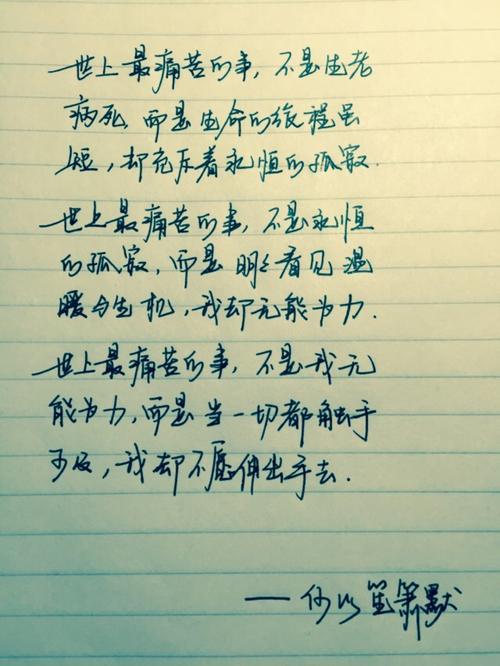 世上最痛苦的事，不是生老
病死，而是生命的旅程虽
短，却充斥着永恒的孤寂．
世上最痛苦的事，不是永恒
的孤寂，而是明明看见温
暖与生机，我却无能为力．
世上最痛苦的事，不是我无
能为力，而是当一切都触手
可及，我却不愿伸出手去．
——何以笙箫默